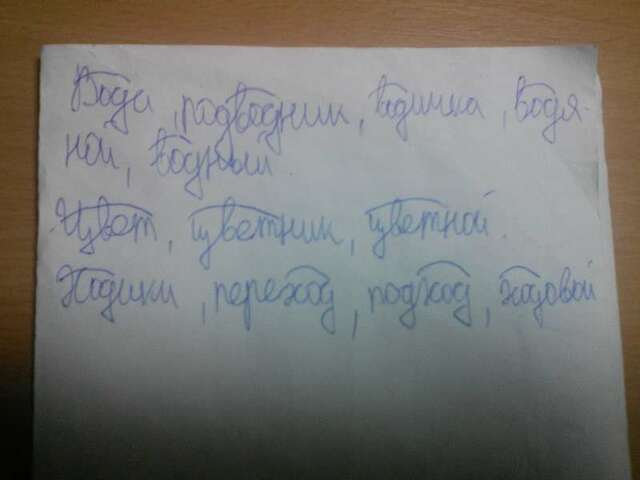 Вода, подводник, водичка, водя-
ной, водный.
Цвет, цветник, цветной.
Ходики, переход, подход, ходовой